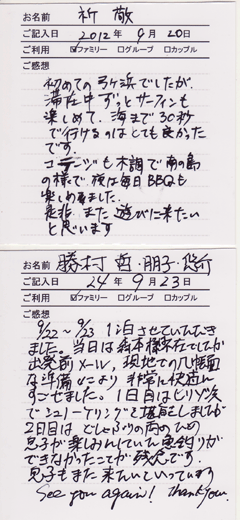 お名前 祈 敬
ご記入日 2012年 9月 20日
ご利用 ☑ファミリー □グループ □カップル
ご感想
初めての弓ヶ浜でしたが、
滞在中ずっとサーフィンも
楽しめて、海まで30秒
で行けるのはとても良かった
です。
コテージも木調で南の島
の様で、夜は毎日BBQも
楽しめました。
是非、また遊びに来たい
と思います
お名前 勝村 哲・朋子・悠介
ご記入日 24年 9月 23日
ご利用 ☑ファミリー □グループ □カップル
ご感想
9/22〜9/23 1泊させていただき
ました。当日は
出発前メール、現地での几帳面
な準備により非常に快適に
すごせました。1日目はヒリゾ浜
でシュノーケリングを しましたが
2日目はどしゃぶりの雨のため
息子が楽しみにしていた魚釣りが
できなかったことが残念です。
息子もまた来たいといっています
See you again! Thank you.